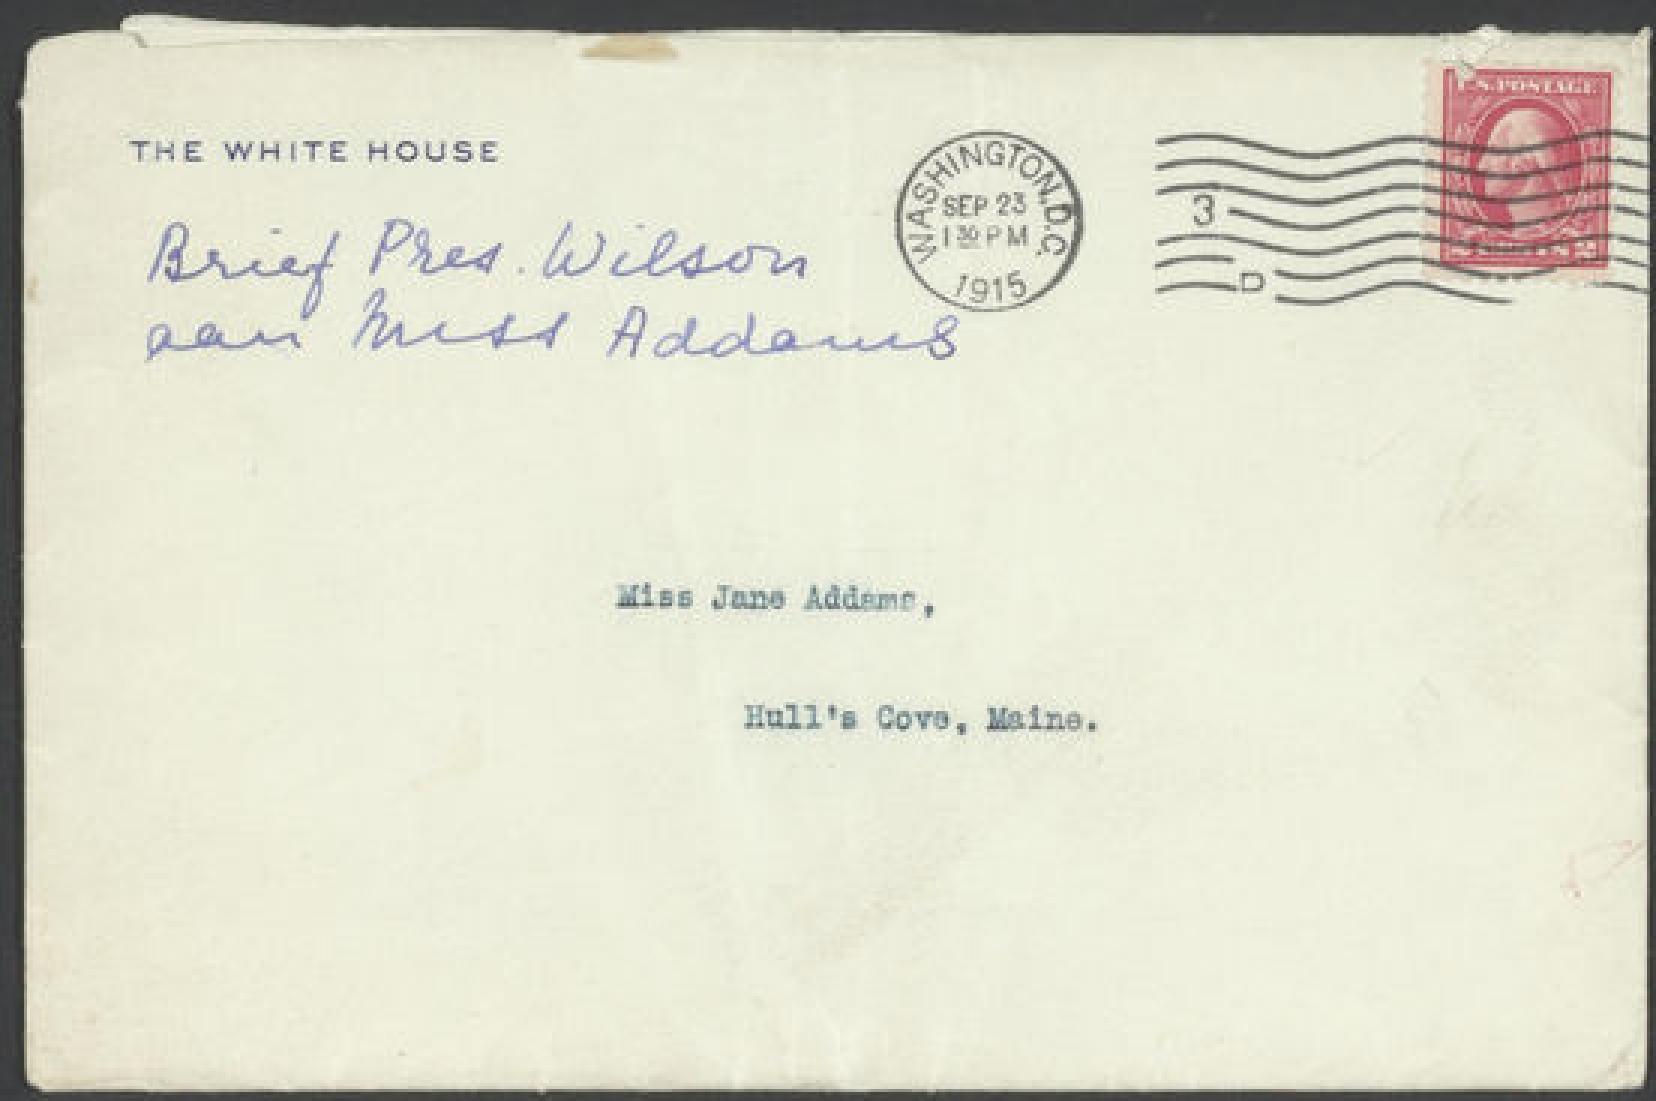 THE WHITE HOUSE
Brief Pres. Wilson
aan Miss Addams
WASHINGTON, D.C.
SEP 23
1 30 PM
1915
3
D
U.S. POSTAGE
Miss Jane Addams,
Hull's Cove, Maine.